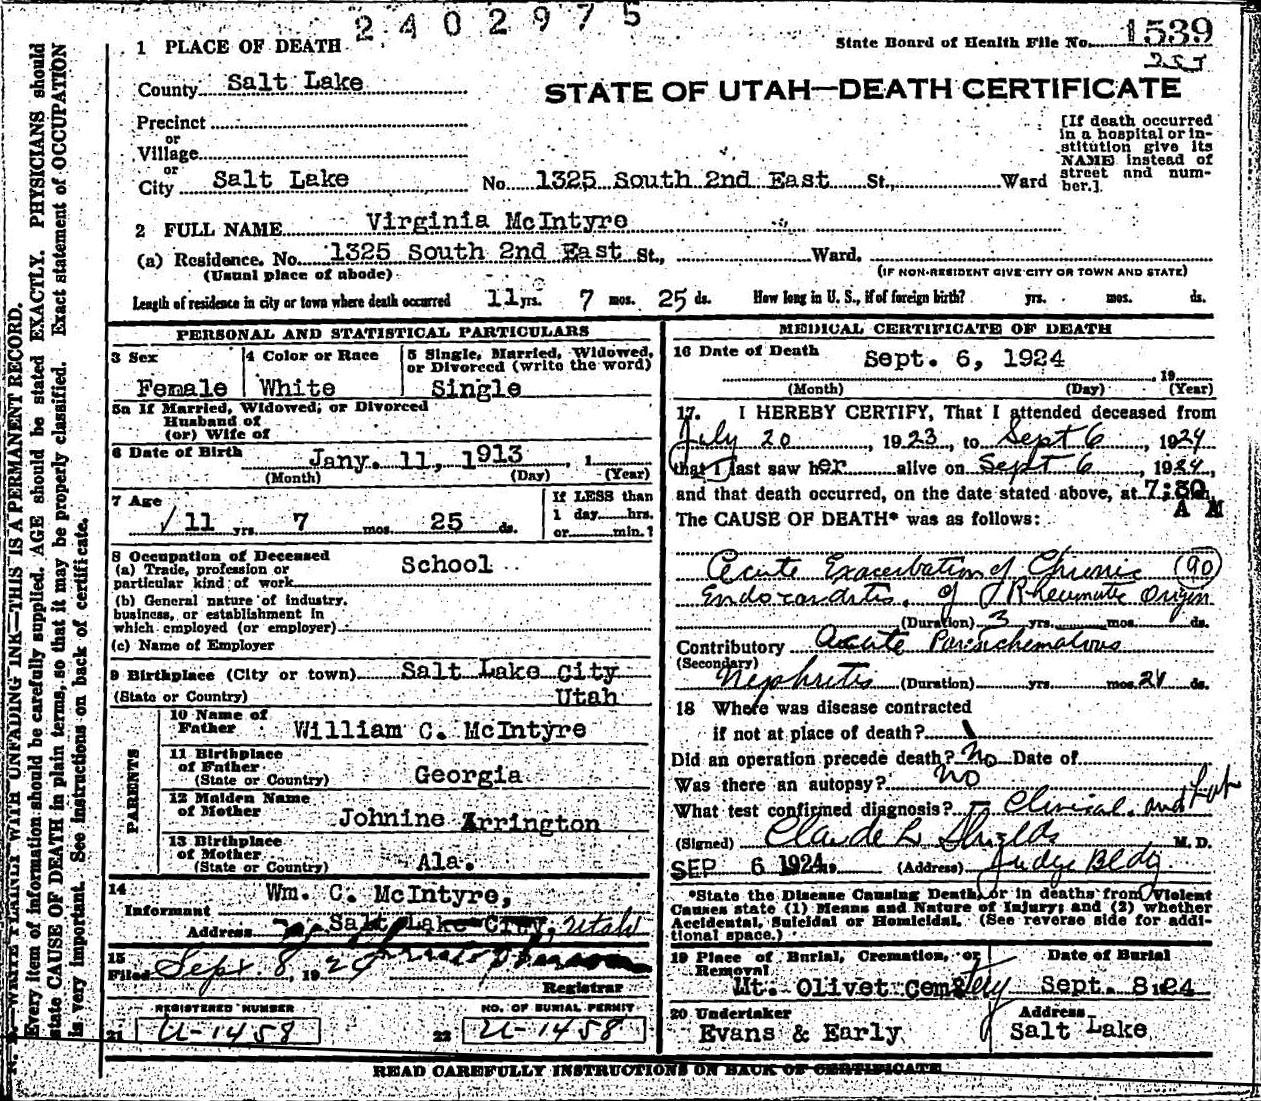 2402975
1 PLACE OF DEATH
State Board of Health File No. 1539
County Salt Lake
STATE OF UTAH—DEATH CERTIFICATE
Precinct
or
Village
or
City Salt Lake No. 1325 South 2nd East St., Ward
[If death occurred
in a hospital or in-
stitution give its
NAME instead of
street and num-
ber.].
2 FULL NAME Virginia McIntyre
(a) Residence. No. 1325 South 2nd East St., Ward.
(Usual place of abode)
(IF NON-RESIDENT GIVE CITY OR TOWN AND STATE)
Length of residence in city or town where death occurred 11 yrs. 7 mos. 25 ds. How long in U. S., if of foreign birth? yrs. mos. ds.
PERSONAL AND STATISTICAL PARTICULARS
3 Sex
Female
4 Color or Race
White
5 Single, Married, Widowed,
or Divorced (write the word)
Single
5a If Married, Widowed, or Divorced
Husband of
(or) Wife of
6 Date of Birth Jany. 11, 1913, 1
(Month) (Day) (Year)
7 Age
11 yrs. 7 mos. 25 ds.
If LESS than
1 day hrs.
or min.?
8 Occupation of Deceased
(a) Trade, profession or
particular kind of work
School
(b) General nature of industry,
business, or establishment in
which employed (or employer)
(c) Name of Employer
9 Birthplace (City or town) Salt Lake City
(State or Country) Utah
PARENTS
10 Name of
Father William C. McIntyre
11 Birthplace
of Father
(State or Country) Georgia
12 Maiden Name
of Mother Johnine Arrington
13 Birthplace
of Mother
(State or Country) Ala.
14
Informant Wm. C. McIntyre,
Address Salt Lake City, Utah
15
Filed Sept 8, 1924
Registrar
REGISTERED NUMBER
21 U-1458
NO. OF BURIAL PERMIT
22 U-1458
MEDICAL CERTIFICATE OF DEATH
16 Date of Death Sept. 6, 1924
, 19
(Month) (Day) (Year)
17. I HEREBY CERTIFY, That I attended deceased from
July 20, 1923, to Sept 6, 1924
that I last saw her alive on Sept 6, 1924,
and that death occurred, on the date stated above, at 7:30 m.
A M
The CAUSE OF DEATH* was as follows:
Acute Exacerbation of Chronic (90)
Endocarditis, of Rheumatic Origin
(Duration) 3 yrs. mos. ds.
Contributory Acute Parenchematous
(Secondary)
Nephritis (Duration) yrs. mos. 21 ds.
18 Where was disease contracted
if not at place of death?
Did an operation precede death? No Date of
Was there an autopsy? No
What test confirmed diagnosis? Clinical and Lab
(Signed) Claude L Shields M. D.
SEP 6 1924 19 (Address) Judge Bldg
*State the Disease Causing Death, or in deaths from Violent
Causes state (1) Means and Nature of Injury; and (2) whether
Accidental, Suicidal or Homicidal. (See reverse side for addi-
tional space.)
19 Place of Burial, Cremation, or
Removal
Mt. Olivet Cemetery
Date of Burial
Sept. 8 1924
20 Undertaker
Evans & Early
Address
Salt Lake
READ CAREFULLY INSTRUCTIONS ON BACK OF CERTIFICATE
N. B.—WRITE PLAINLY WITH UNFADING INK—THIS IS A PERMANENT RECORD.
Every item of information should be carefully supplied. AGE should be stated EXACTLY. PHYSICIANS should
state CAUSE OF DEATH in plain terms, so that it may be properly classified. Exact statement of OCCUPATION
is very important. See instructions on back of certificate.